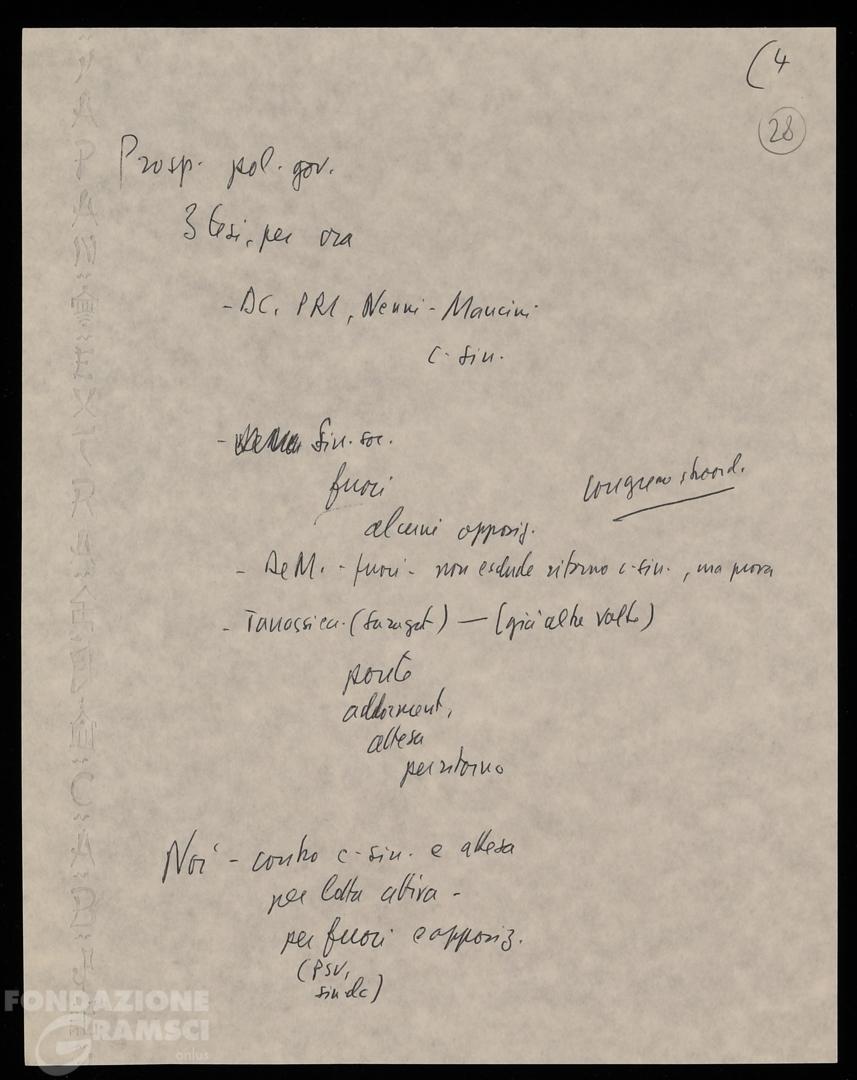 (4
28
Prosp. pol. gov.
3 tesi, per ora
- DC, PRI, Nenni - Mancini
c-sin.
- Sin. soc.
fuori
congresso straord.
alcuni opposiz.
- De M. - fuori - non esclude ritorno c-sin., ma prova
- Tanassien. (Saragat) — (già altre volte)
ponte
addorment,
attesa
per ritorno
Noi - contro c-sin. e attesa
per lotta attiva -
per fuori e opposiz.
(PSU,
sin dc)
FONDAZIONE
GRAMSCI
onlus